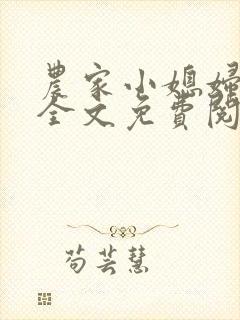 農家小媳婦
全文免費閱
芶芸慧